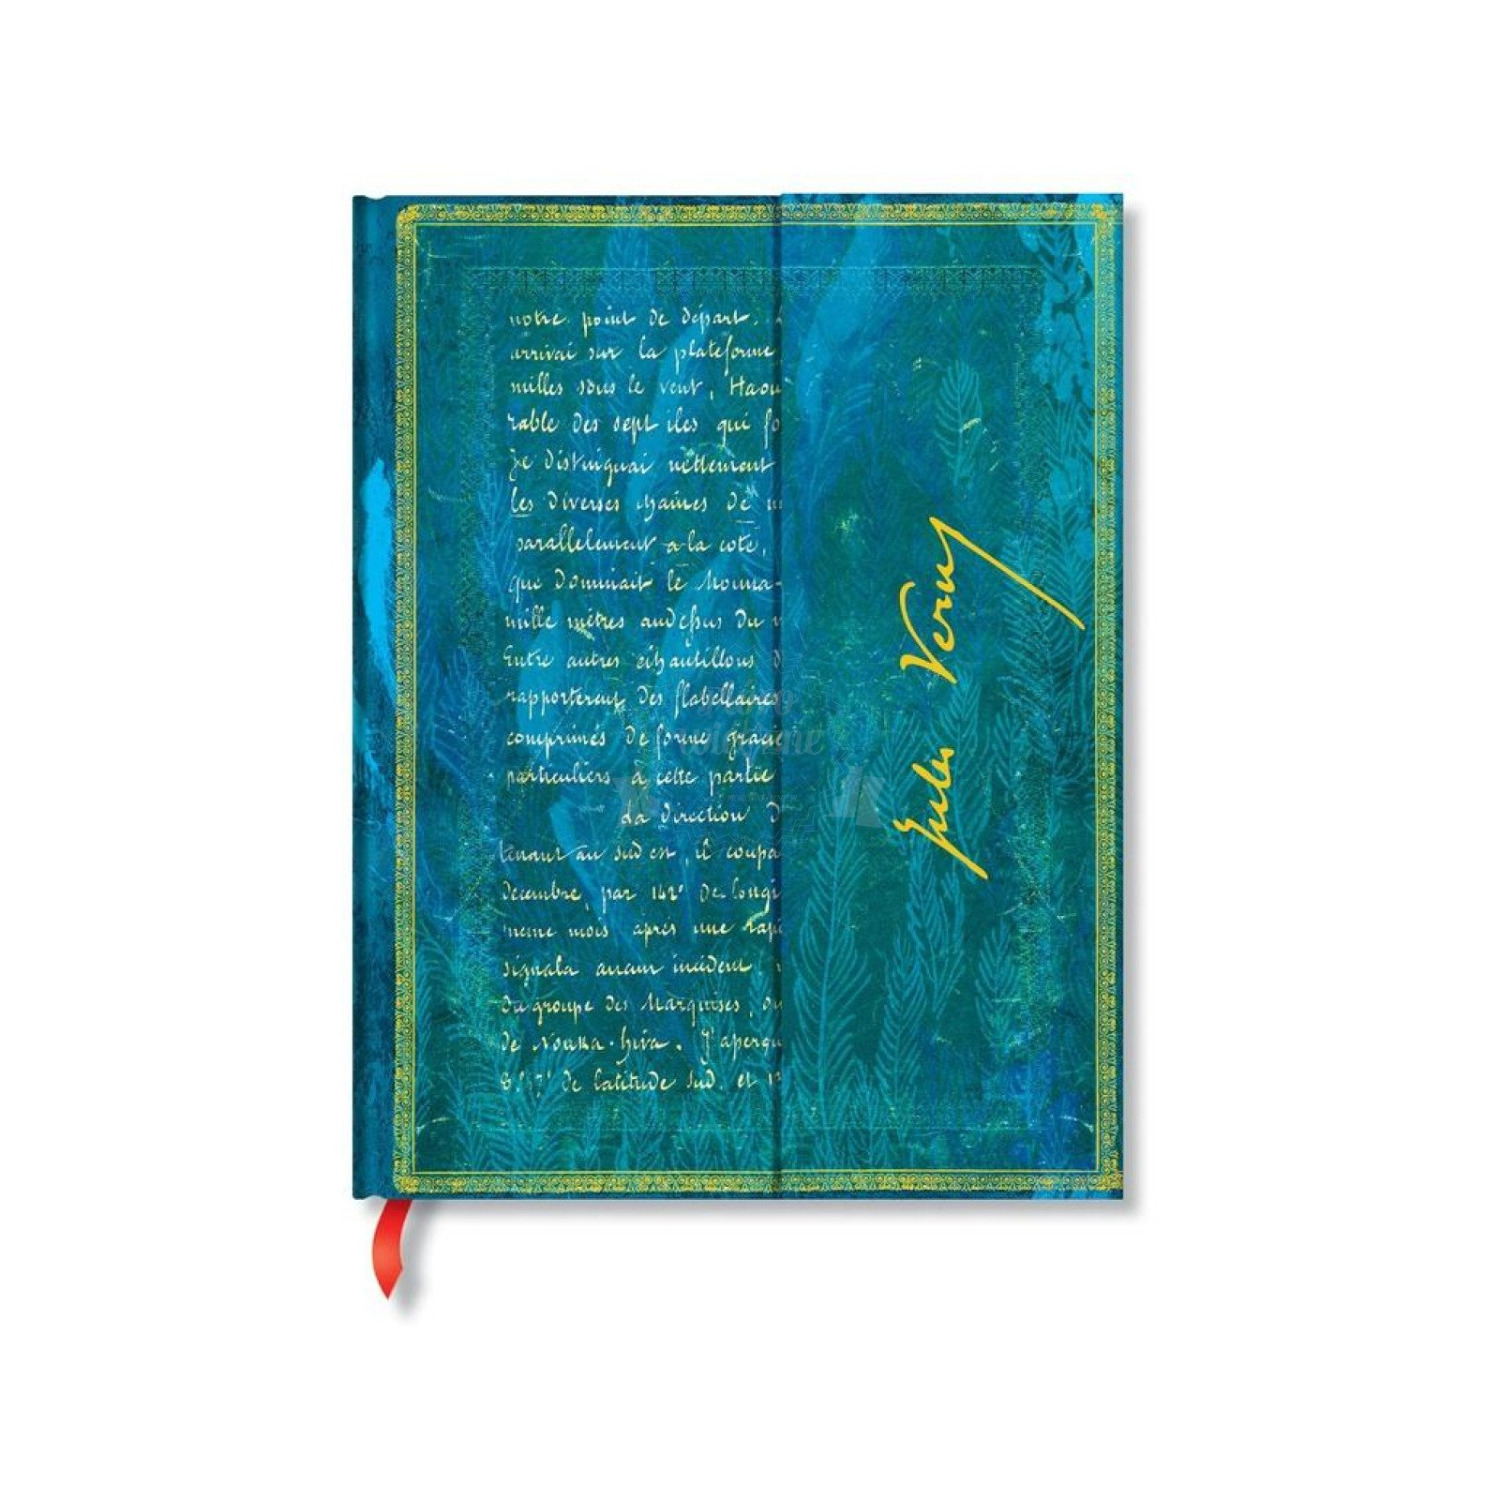 notre point de départ.
arrivai sur la plateforme
milles sous le vent, Haou
rable des sept iles qui fo
Je distinguai nettement
les diverses chaines de
parallelement a la cote,
que dominait le Mouna-
mille mètres audessus du
Entre autres échantillons d
rapporterent des flabellaires
comprimés de forme gracie
particuliers à cette partie
La direction d
tenant au sud est, il coupa
Decembre, par 142° de longi
meme mois après une rapi
signala aucun incident,
du groupe des Marquises, ou
de Nouka-hiva. J'aperçu
8. 57' de latitude sud, et 13
Jules Verne